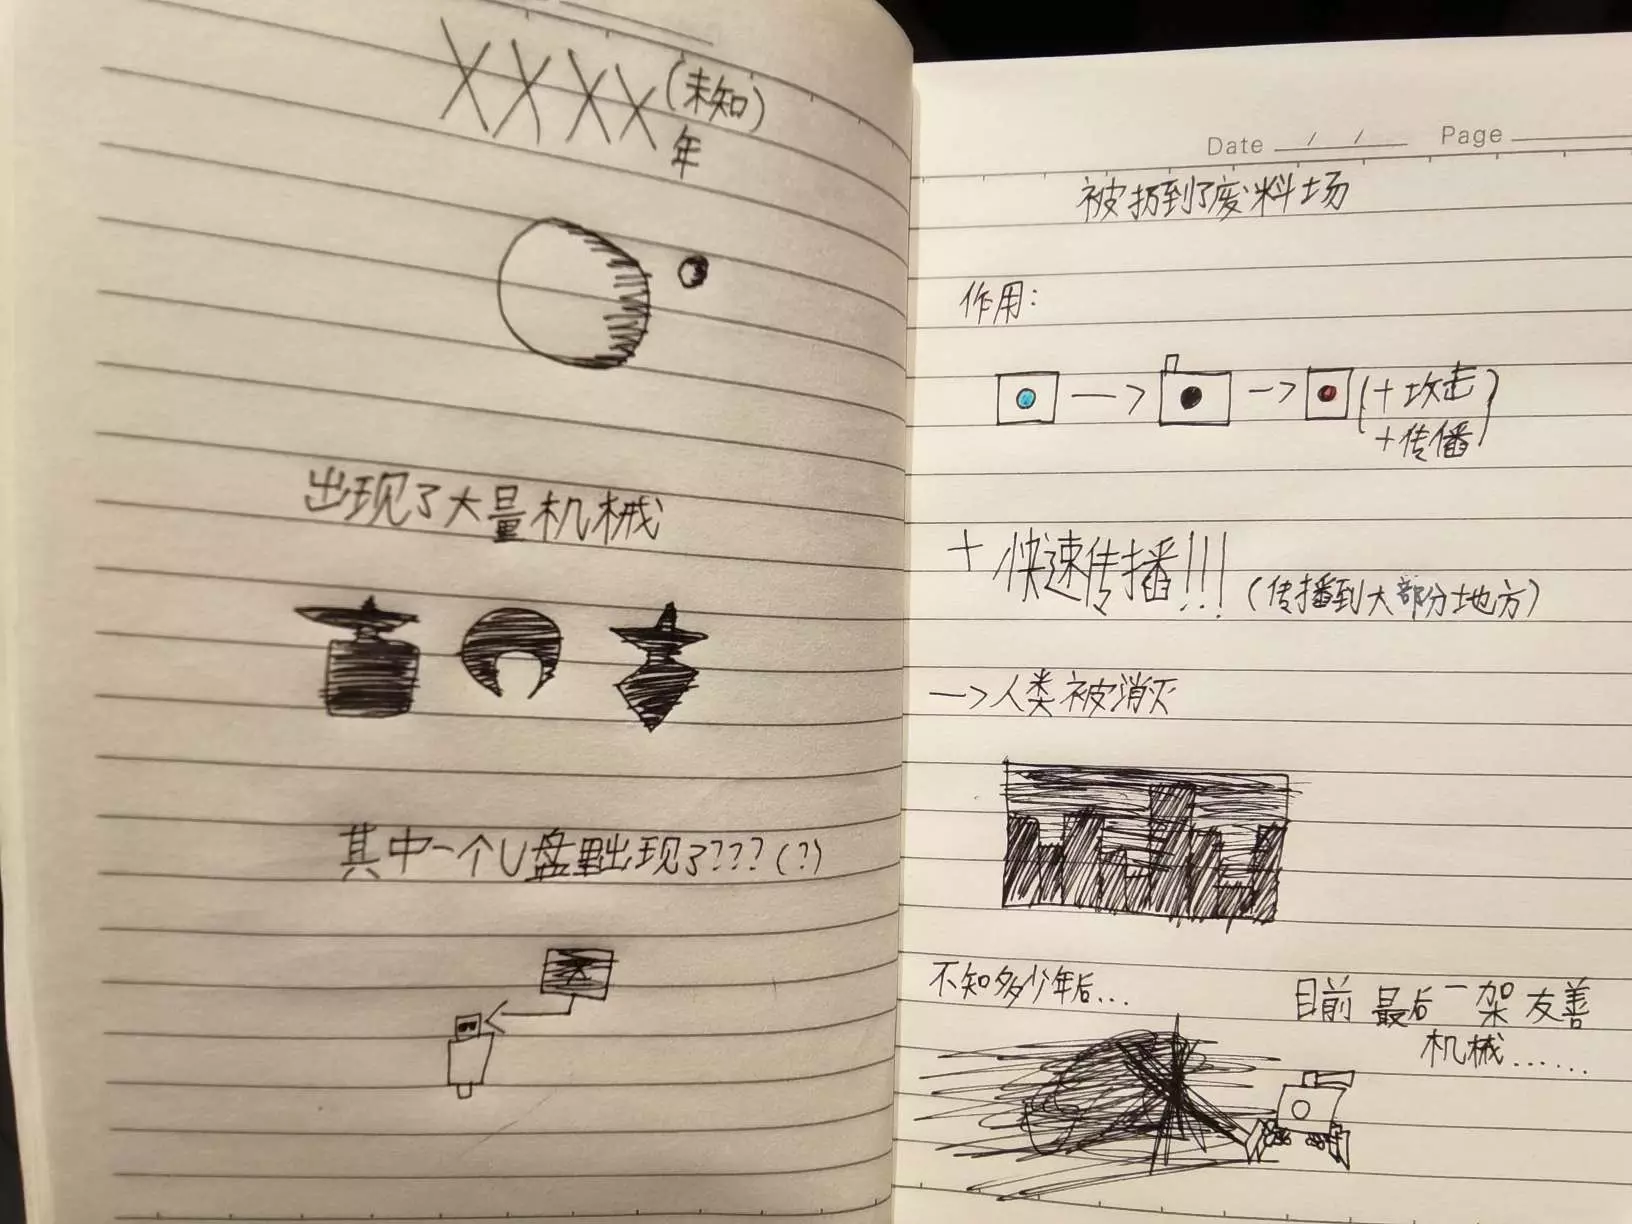 XXXX(未知)
年
出现了大量机械
其中一个U盘里出现了???(?)
Date / / Page
被扔到了废料场
作用:
(+攻击
+传播)
+快速传播!!!(传播到大部分地方)
—>人类被消灭
不知多少年后...
目前最后一架友善
机械......